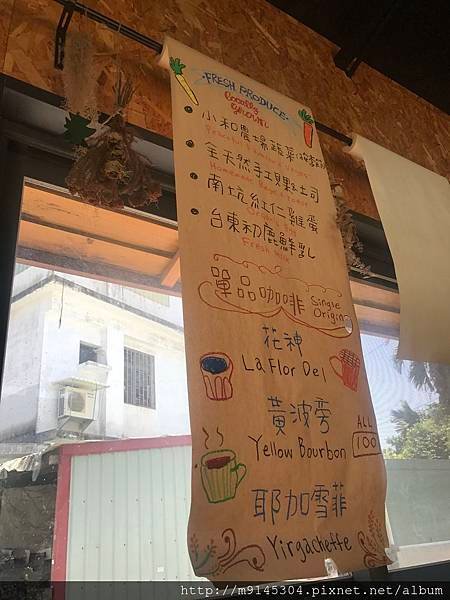 FRESH PRODUCE
locally grown
小和農場蔬菜
全天然手工貝果&土司
Homemade Bagel & Toast
南坑紅仁雞蛋
Organic Egg
台東初鹿鮮乳
Fresh Milk
單品咖啡 Single Origin
花神
La Flor Del
黃波旁
Yellow Bourbon
ALL 100
耶加雪菲
Yirgacheffe
http://m9145304.pixnet.net/album